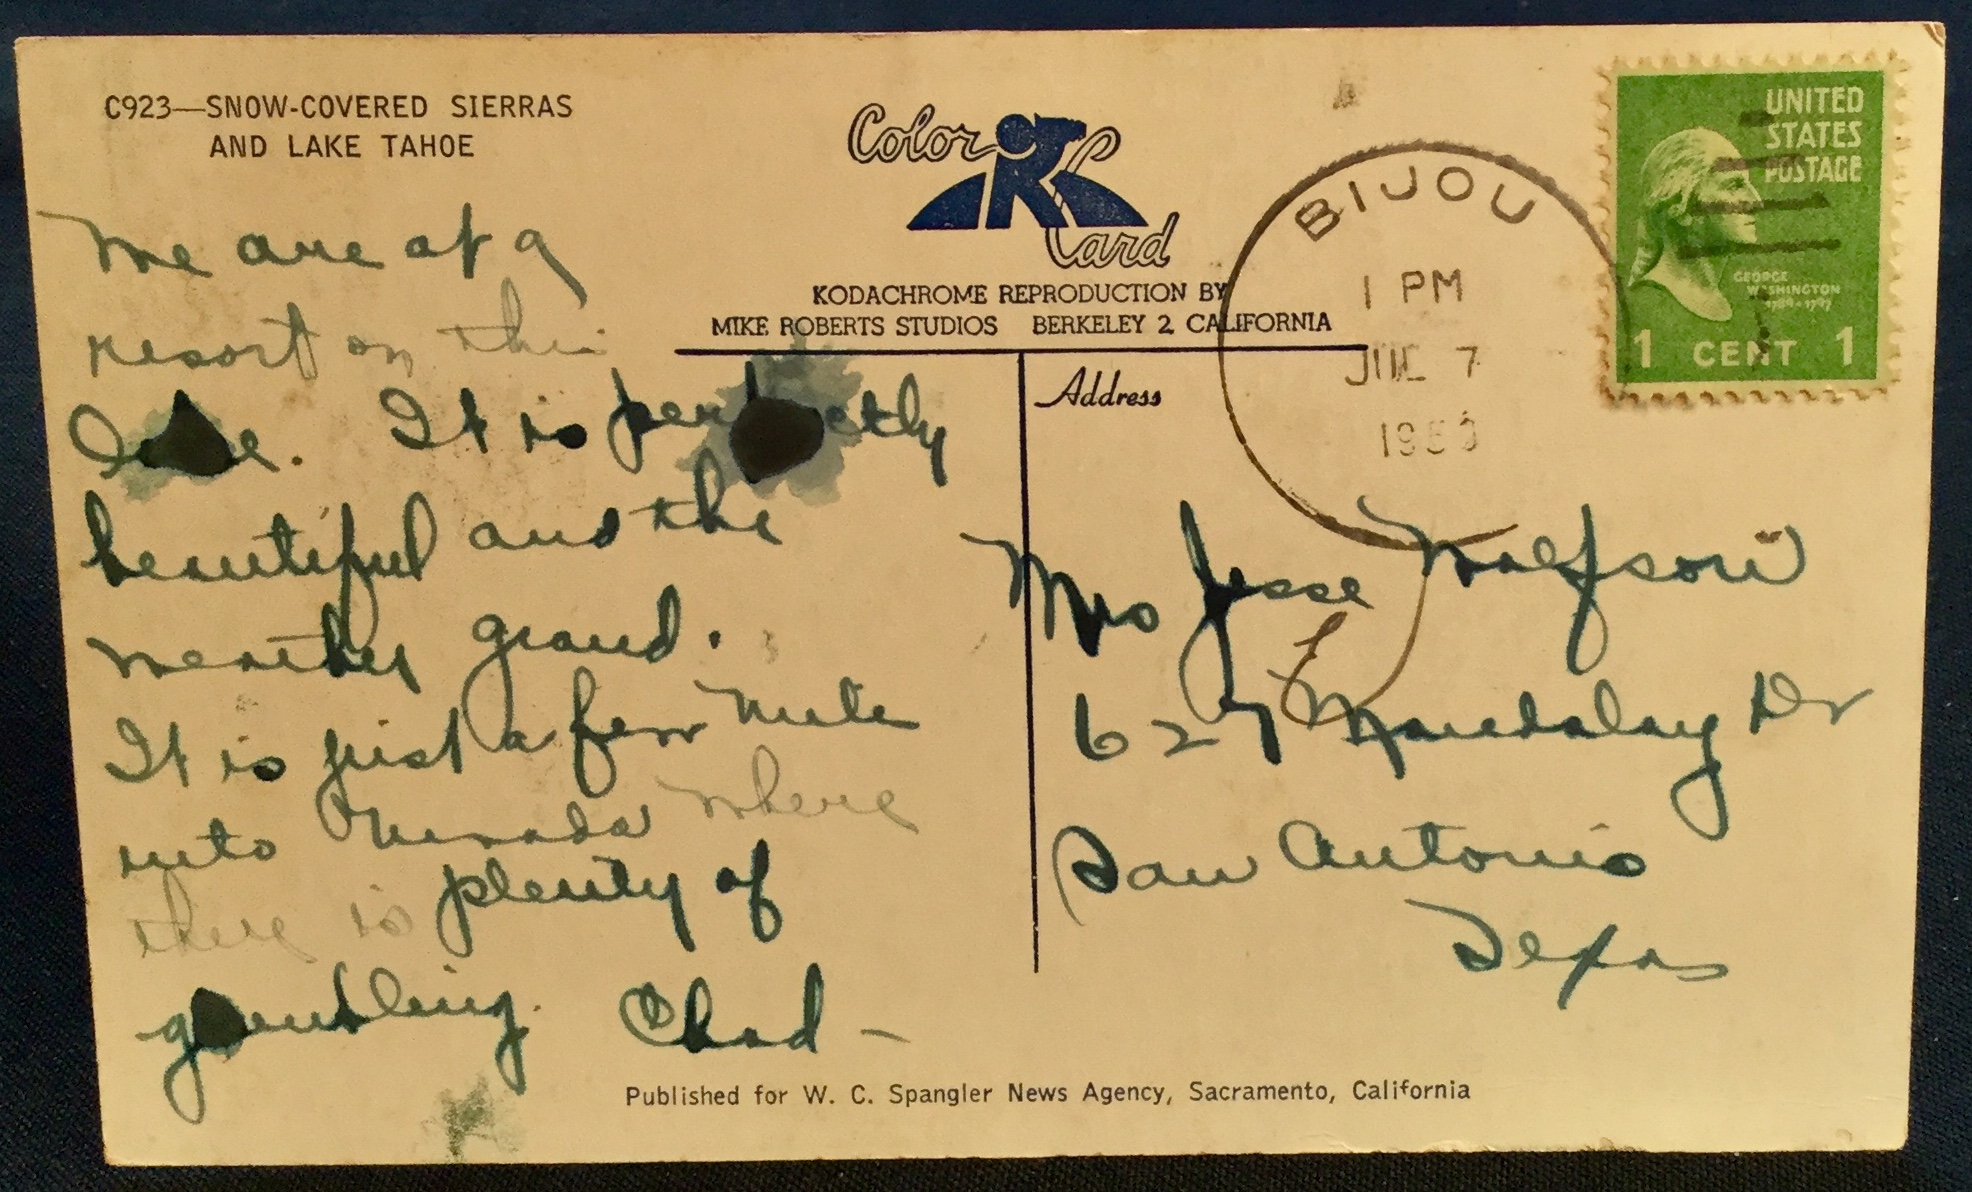 C923—SNOW-COVERED SIERRAS
AND LAKE TAHOE
Color
Card
KODACHROME REPRODUCTION BY
MIKE ROBERTS STUDIOS BERKELEY 2, CALIFORNIA
BIJOU
1 PM
JUL 7
UNITED
STATES
POSTAGE
GEORGE
WASHINGTON
1789-1797
1 CENT 1
We are at a
resort on this
lake. It is perfectly
beautiful and the
weather grand.
It is just a few mile
into Nevada where
there is plenty of
gambling. Chad -
Address
Mrs Jesse Wolfson
627 Mandalay Dr
San Antonio
Texas
Published for W. C. Spangler News Agency, Sacramento, California